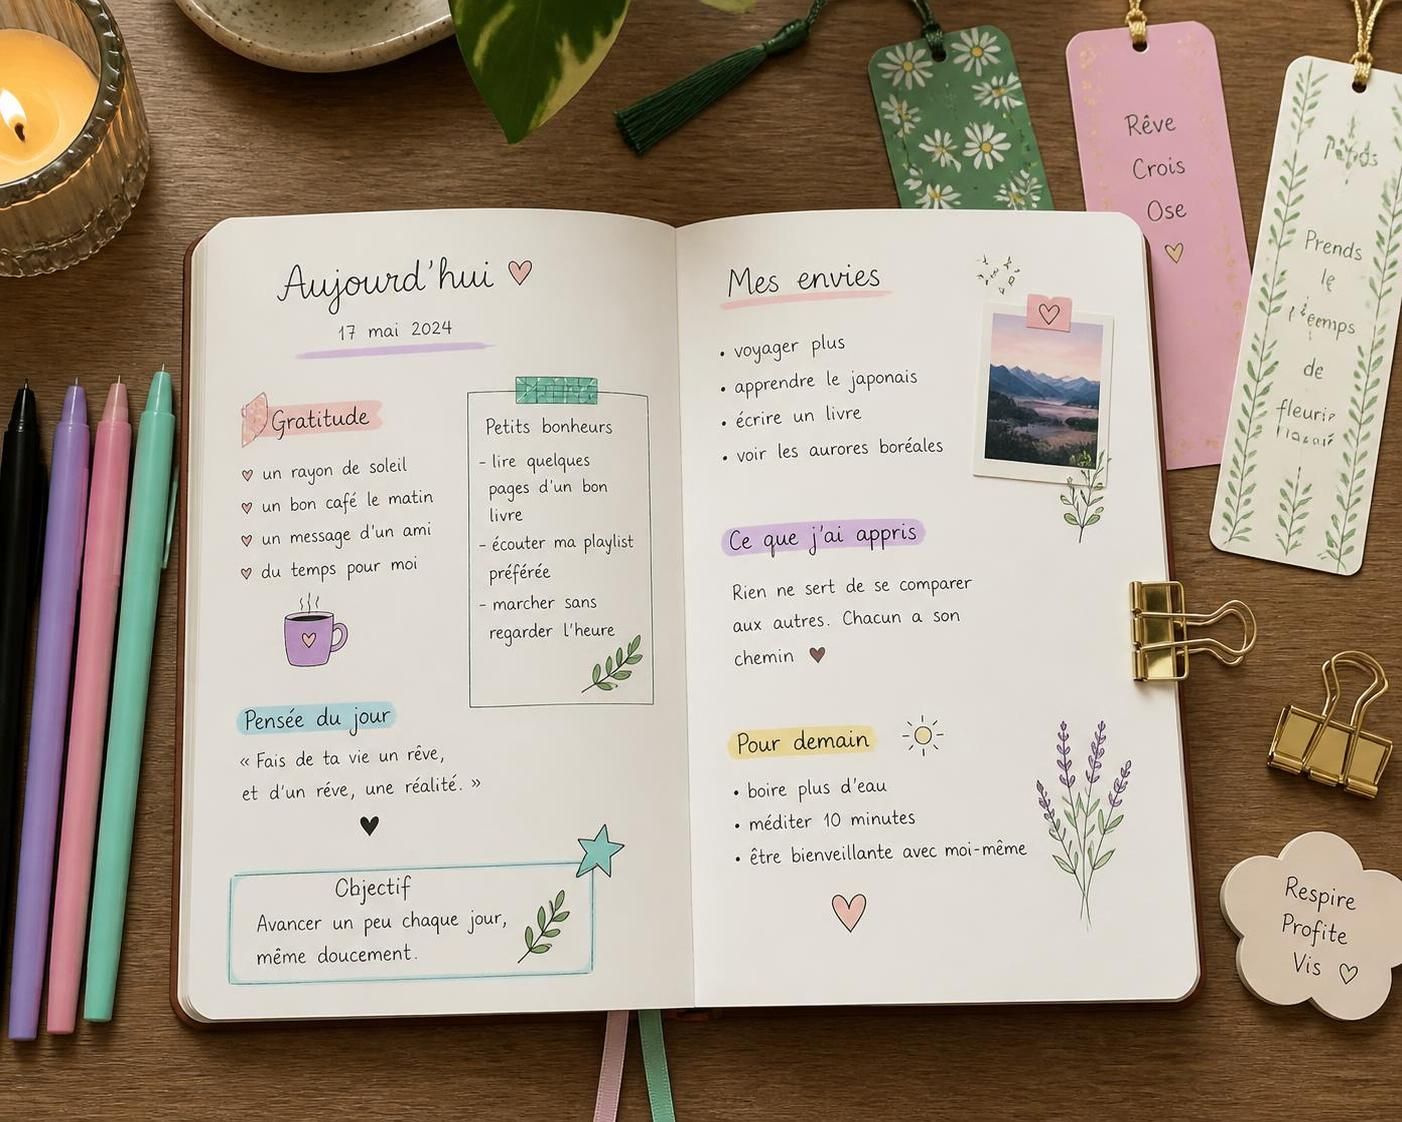 Aujourd'hui
17 mai 2024
Gratitude
un rayon de soleil
un bon café le matin
un message d'un ami
du temps pour moi
Petits bonheurs
- lire quelques
pages d'un bon
livre
- écouter ma playlist
préférée
- marcher sans
regarder l'heure
Pensée du jour
« Fais de ta vie un rêve,
et d'un réve, une réalité. »
Cbjectif
Avancer un peu chaque jour,
même doucement.
Mes envies
• voyager plus
• apprendre le japonais
• écrire un livre
• voir les aurores boréales
Ce que j'ai appris
Rien ne sert de se comparer
aux autres. Chacun a son
chemin
Pour demain
• boire plus d'eau
• méditer 10 minutes
• être bienveillante avec moi-même
Rêve
Crois
Ose
Prends
le
de
Respire
Profite
Vis